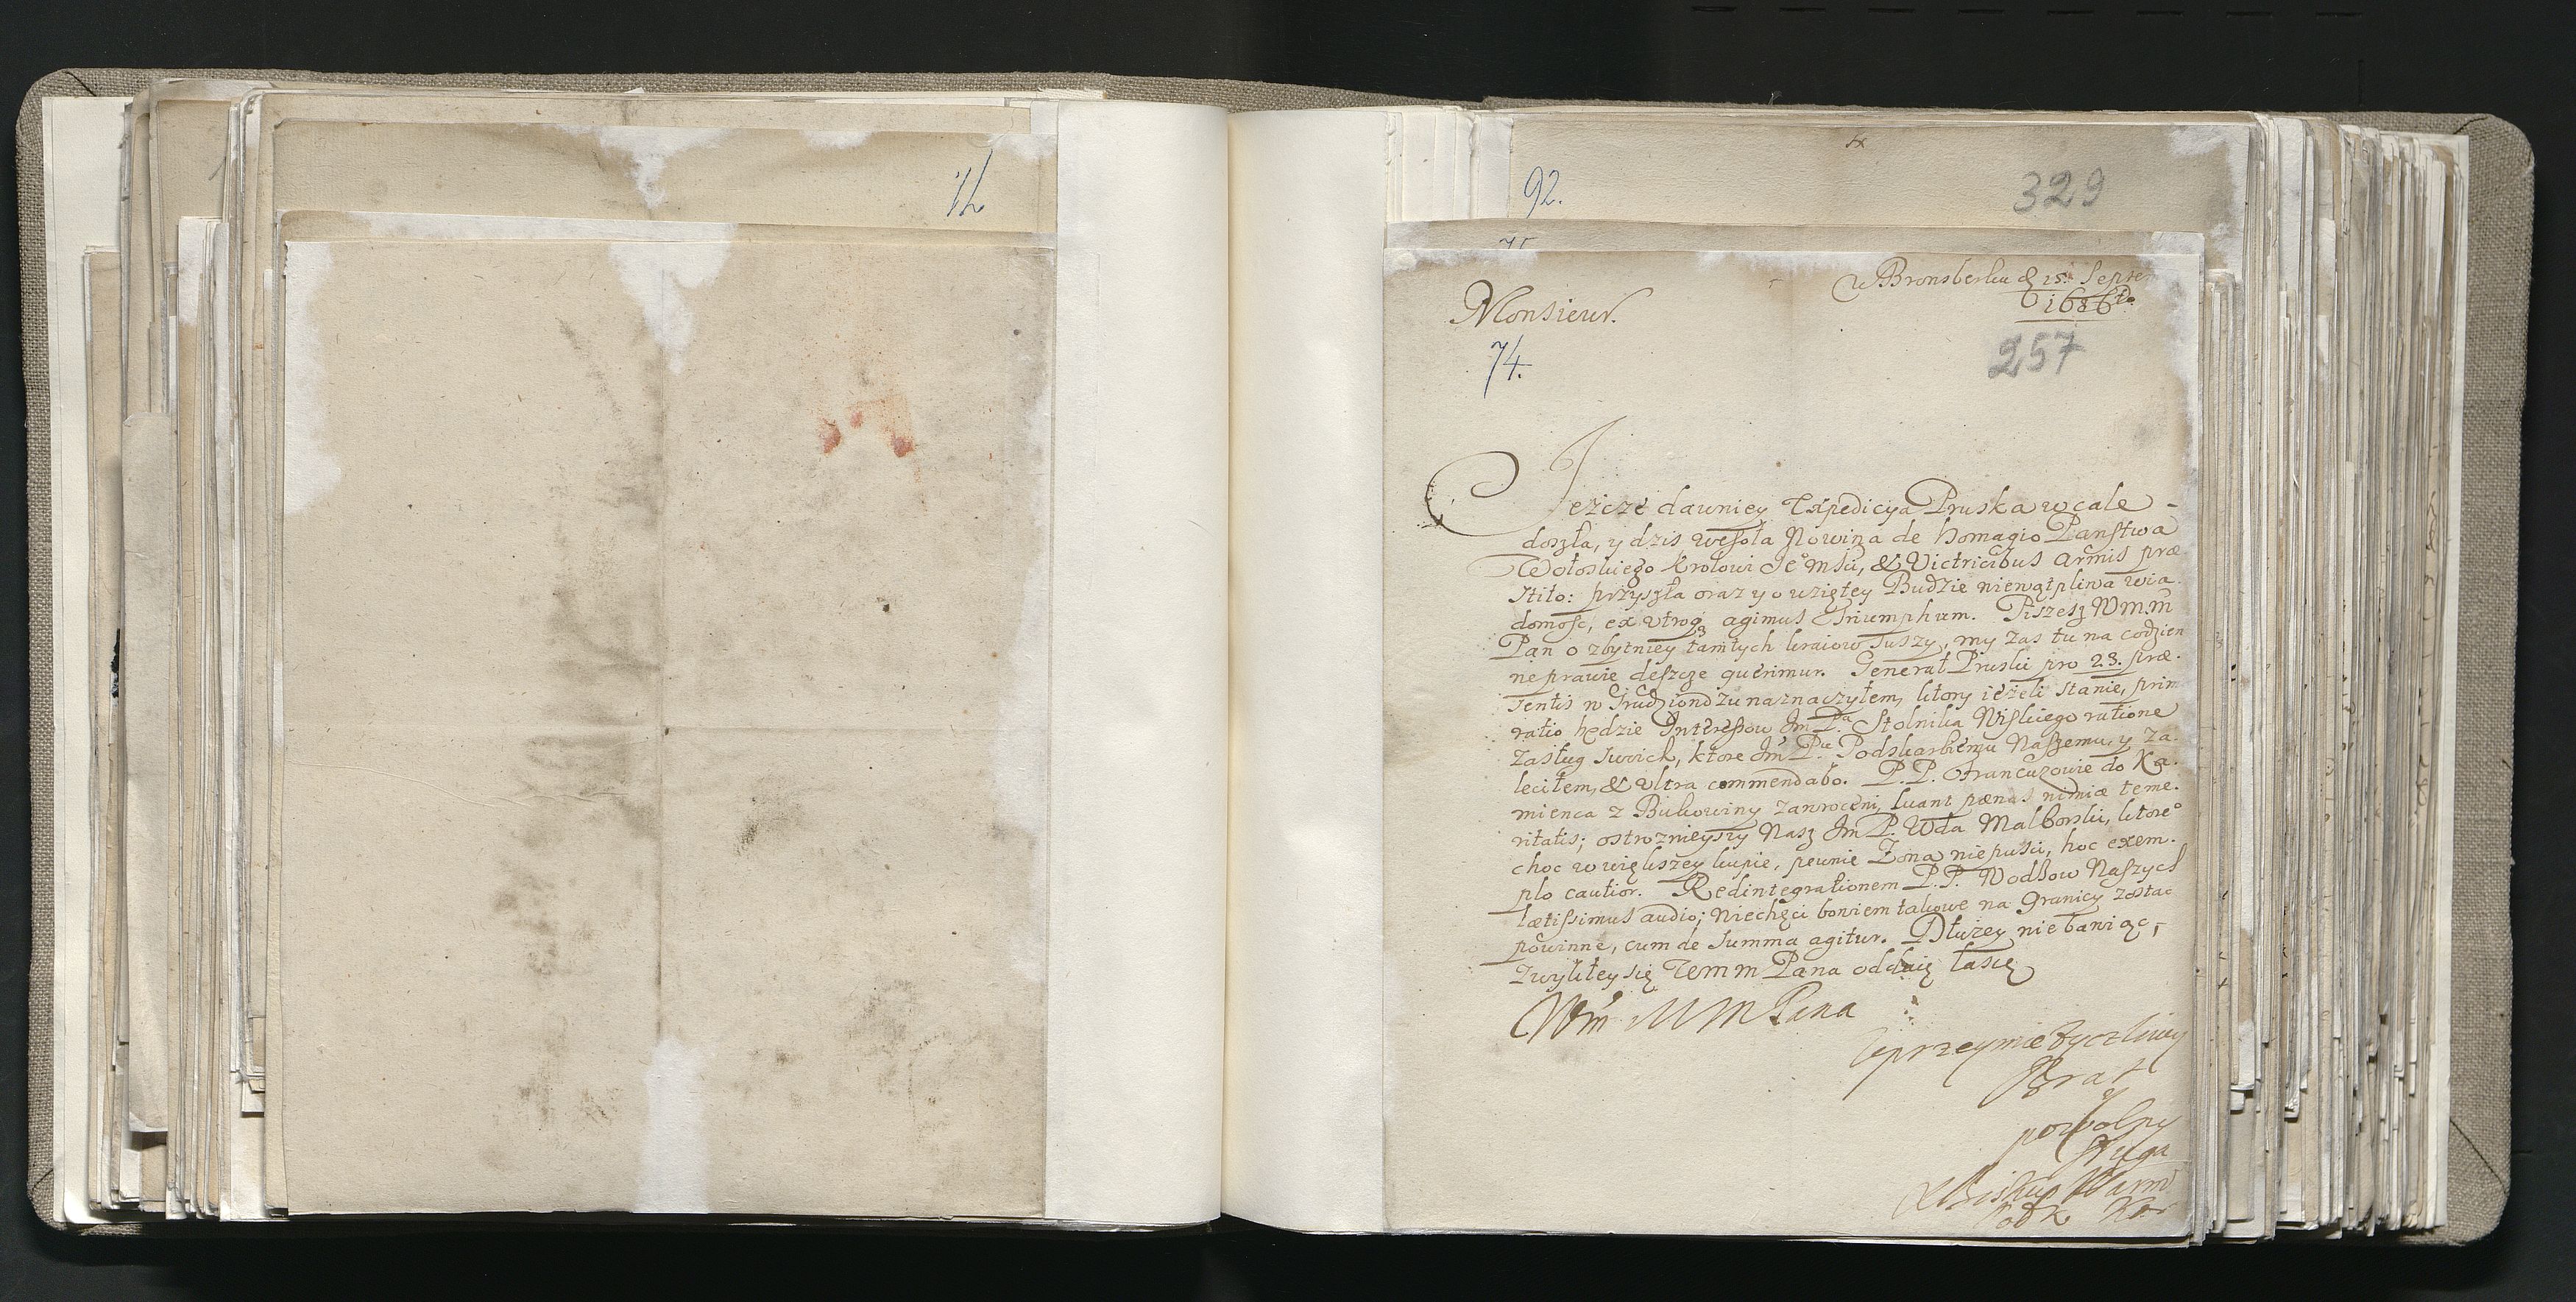 72
92.
329
w Bronsberku d 15. Septem
1686to
Monsieur.
74.
257
Jeżcze dawniey Expedicya Pruska w cale
doszła, y dzis wesoła Nowina de homagio Panstwa
Wołoskiego Krolowi Je° Msci, & Victricibus Armis præ
stito: przyszła oraz y o wziętey Budzie niewątpliwa wia
domosc, ex utroq₃ agimus Triumphum. Piszesz Wm. m
Pan o zbytniey tamtych kraiow suszy, my zas tu na codzien
ne prawie deszcze querimur. Generał Pruski pro 23. præ
sentis w Grudziondzu naznaczyłem, ktory ieżeli stanie, prim
ratio będzie Interessow Jm Pa Stolnika Niskiego ratione
zasług swoich, ktore Jm Pu Podskarbiemu Naszemu, y za
leciłem, & ultra commendabo. P.P. Francuzowie do Ka.
mienca z Bukowiny zawroceni, luant pœnas nimiæ teme.
ritatis; ostroznieyszy Nasz Jm P. Wda Malborski, ktore°
choc w większey kupie, pewnie Zona nie pusci, hoc exem.
plo cautior. Redintegrationem P.P. Wodzow Naszych
lætissimus audio; Niechęci bowiem takowe na Granicy zostac
powinne, cum de Summa agitur. Dłużey nie bawiąc,
zwykłey się Wmm Pana oddaię łasce
Wm M M Pana
Uprzeymie życzliwy
Brat
y
powolny
Sługa
Biskup Warm
Podk Kor